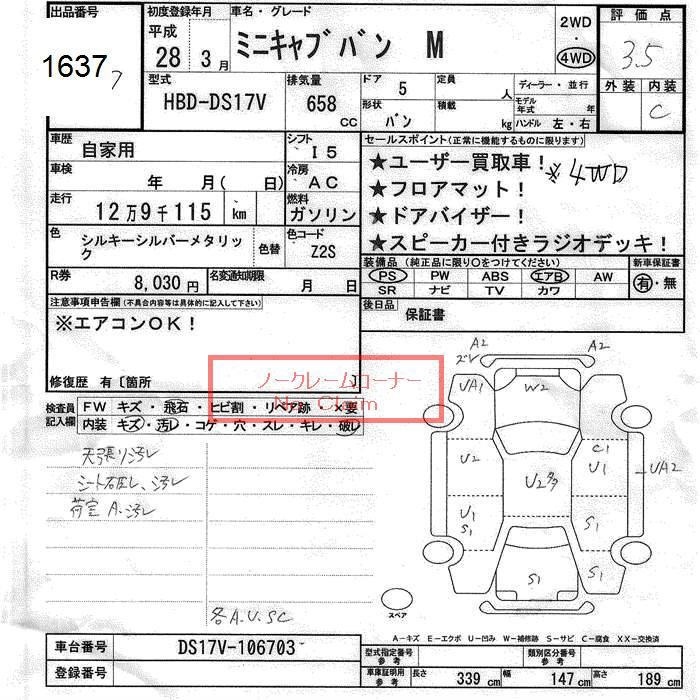 出品番号
1637 7
初度登録年月
平成
28 3月
車名・グレード
ミニキャブバン M
2WD
・
4WD
評価点
3.5
外装 内装
C
型式
HBD-DS17V
排気量
658 CC
ドア 5
形状 バン
定員 人
積載 kg
ディーラー・並行
モデル年式 年
ハンドル 左・右
車歴
自家用
シフト
I5
車検
年 月( 日)
冷房
AC
走行
12万9千115 km
燃料
ガソリン
色
シルキーシルバーメタリック
色替
色コード
Z2S
R券
8,030円
名変通知期限
月 日
セールスポイント(正常に機能するものに限ります)
★ユーザー買取車!
※4WD
★フロアマット!
★ドアバイザー!
★スピーカー付きラジオデッキ!
装備品 (純正品に限り○をつけてください)
新車保証書
PS PW ABS エアB AW
SR ナビ TV カワ
有・無
後日品
保証書
注意事項申告欄(不具合内容等は具体的に記入して下さい)
※エアコンOK!
修復歴 有〔箇所
ノークレームコーナー
No Claim
検査員
記入欄
FW キズ・飛石・ヒビ割・リペア跡・×要
内装 キズ・汚レ・コゲ・穴・スレ・キレ・破レ
天張リ汚レ
荷室 A.汚レ
各A.U.SC
A2 A2
ズレ
UA1 W2
U2 U2多 C1 U1 UA2
U1 S1 S1
S1
スペア
A-キズ E-エクボ U-凹み W-補修跡 S-サビ C-腐食 XX-交換済
車台番号
DS17V-106703
登録番号
型式指定番号
参考
類別区分番号
参考
車庫証明用
参考
長さ 339 cm 幅 147 cm 高さ 189 cm